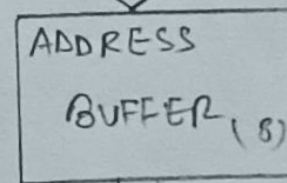 ADDRESS
BUFFER (8)